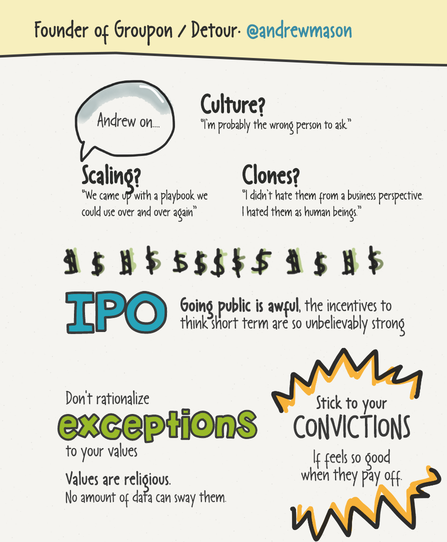 Founder of Groupon / Detour· @andrewmason
Andrew on...
Culture?
"I'm probably the wrong person to ask."
Scaling?
"We came up with a playbook we
could use over and over again"
Clones?
"I didn't hate them from a business perspective.
I hated them as human beings."
$ $ $ $ $ $ $ $ $ $ $ $ $
IPO
Going public is awful, the incentives to
think short term are so unbelievably strong
Don't rationalize
exceptions
to your values
Values are religious.
No amount of data can sway them.
Stick to your
CONVICTIONS
If feels so good
when they pay off.